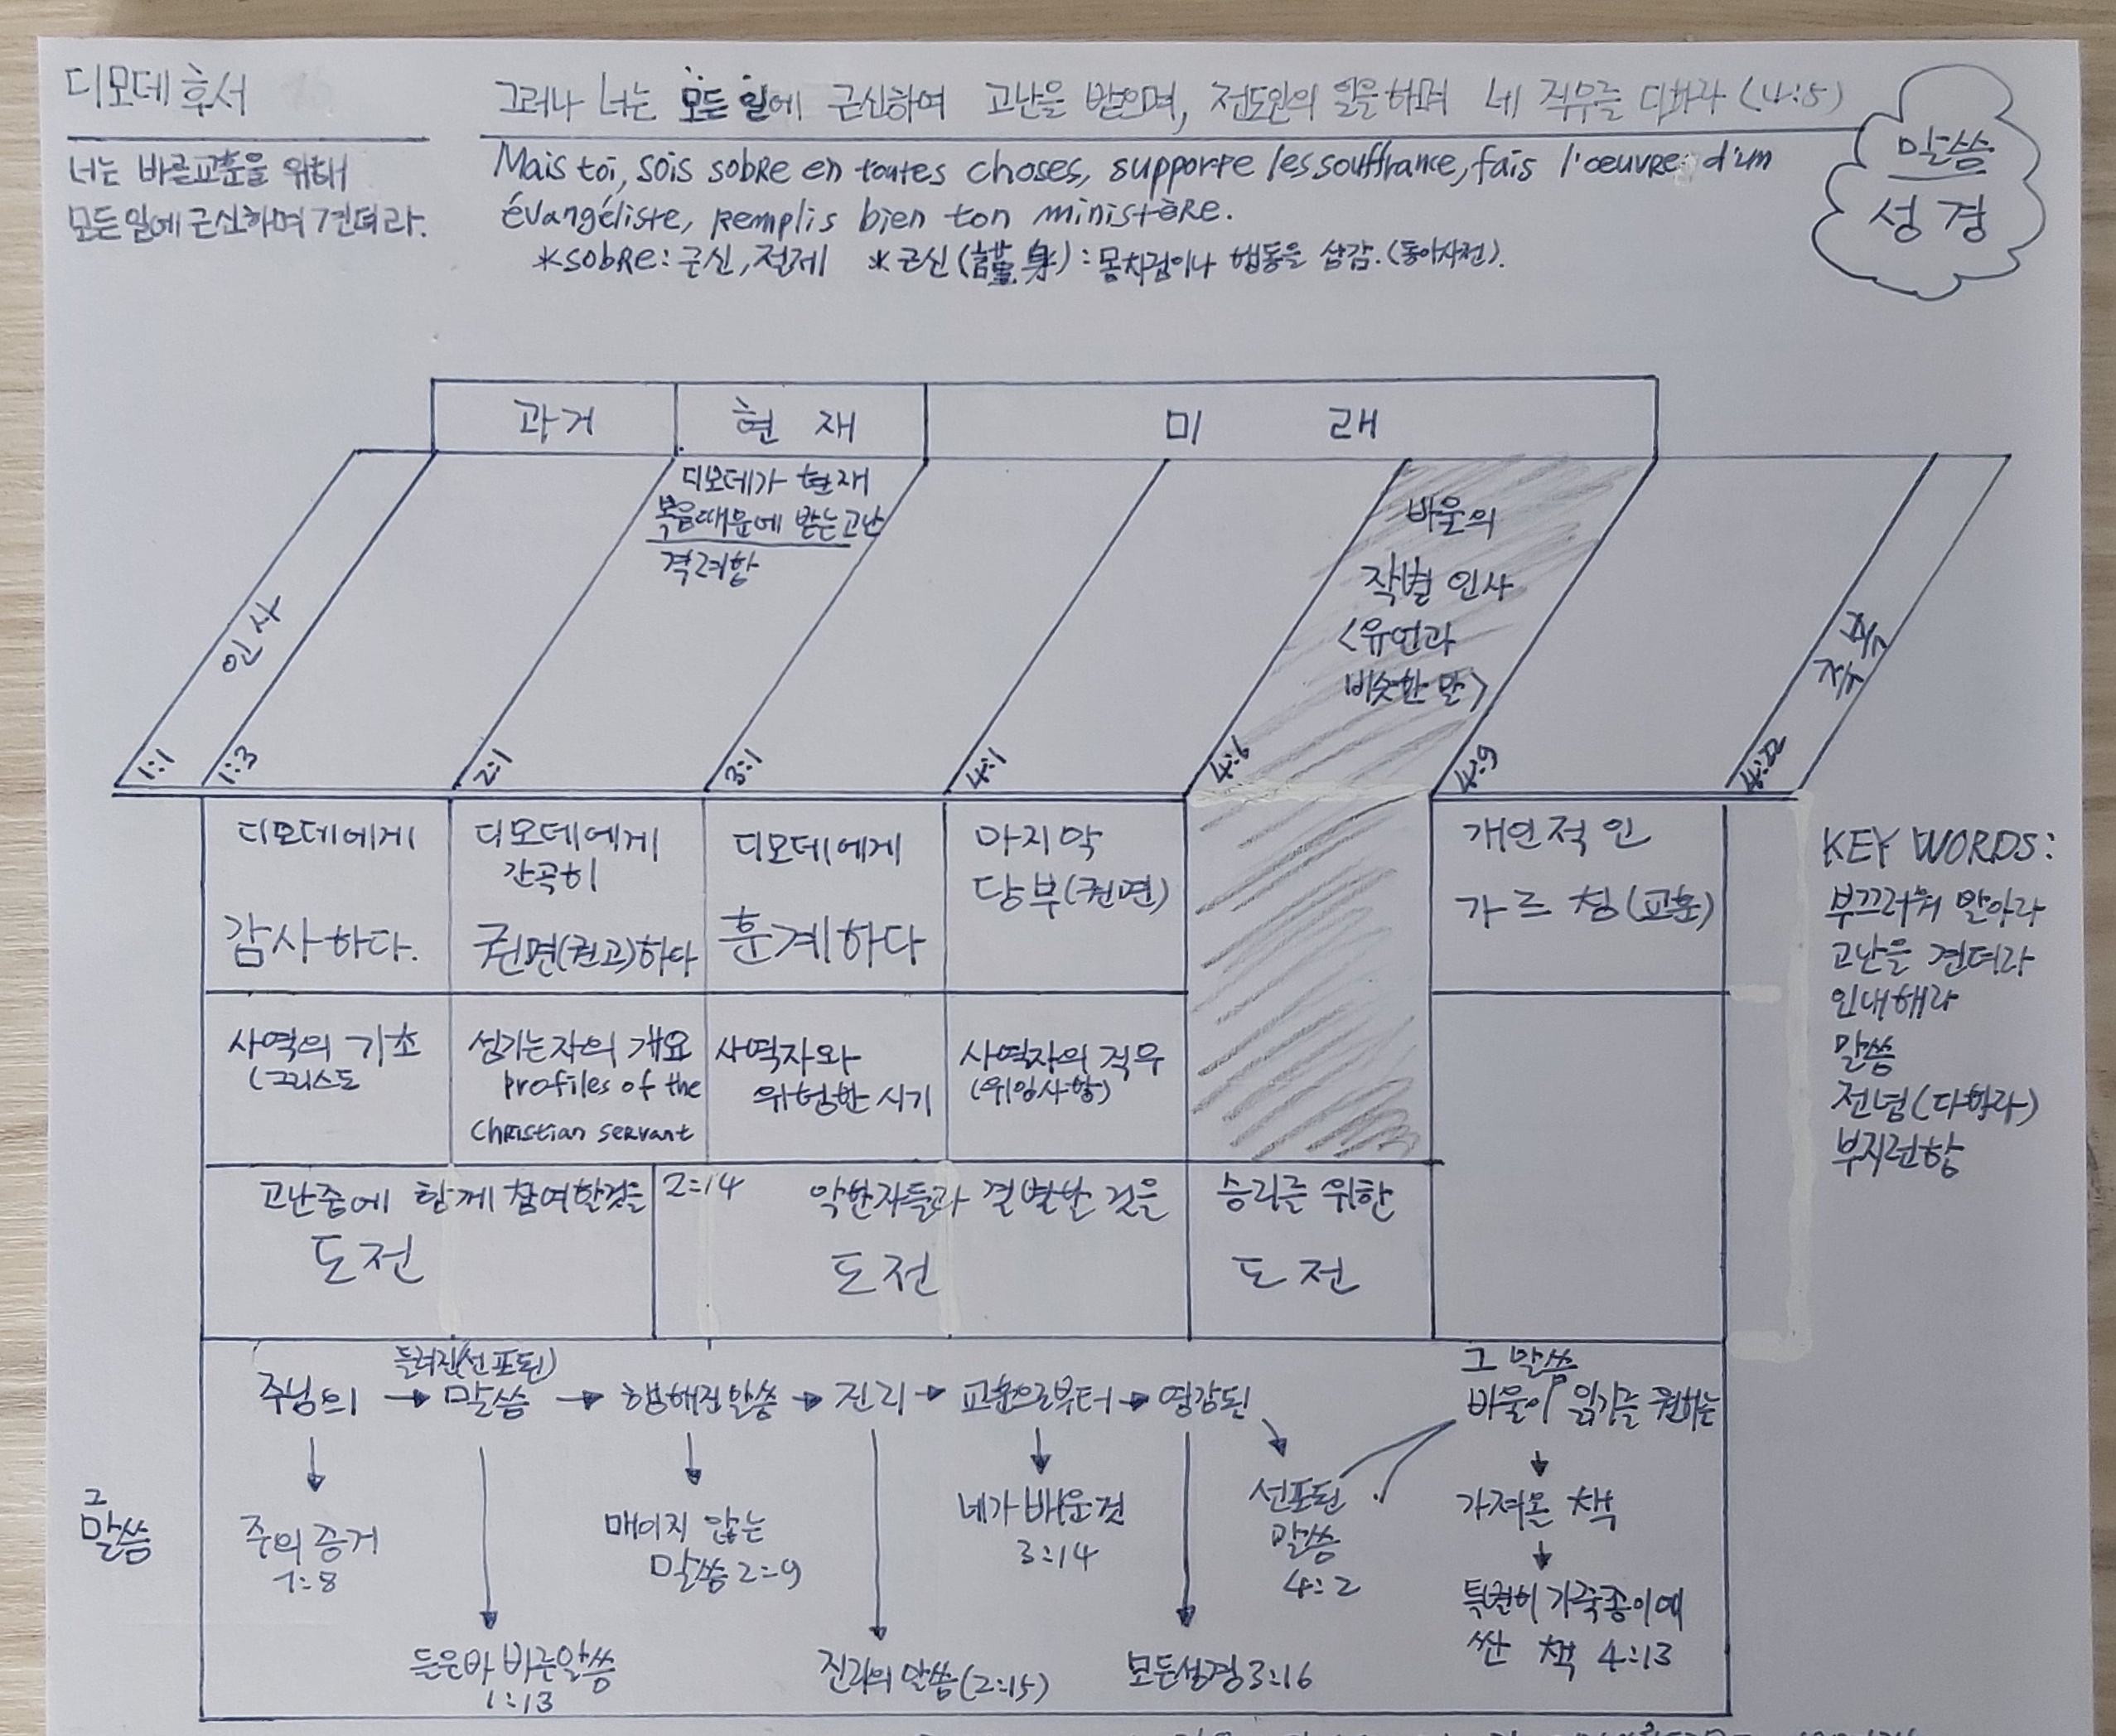 디모데후서
너는 바른교훈을 위해
모든일에 근신하며 견뎌라.
그러나 너는 모든 일에 근신하여 고난을 받으며, 전도인의 일을 하며 네 직무를 다하라 (4:5)
Mais toi, sois sobre en toutes choses, supporte les souffrance, fais l'oeuvre d'un
évangéliste, remplis bien ton ministère.
*sobre:근신, 절제 *근신(謹身): 몸차림이나 행동을 삼감.(동아사전).
말씀
성경
과거 현 재 미 래
디모데가 현재
복음때문에 받는고난
격려함
바울의
작별 인사
<유언과
비슷한 말>
인사
축
1:1 1:3 2:1 3:1 4:1 4:6 4:9 4:22
디모데에게
감사하다.
디모데에게
간곡히
권면(권고)하다
디모데에게
훈계하다
마지막
당부(권면)
개인적인
가르침(교훈)
사역의 기초
(그리스도
섬기는자의 개요
profiles of the
Christian servant
사역자와
위험한 시기
사역자의 직무
(위임사항)
고난중에 함께 참여할것을
도전
2:14 악한자들과 결별할 것을
도전
승리를 위한
도전
KEY WORDS:
부끄러워 말아라
고난을 견뎌라
인내해라
말씀
전념(다하라)
부지런함
그
말씀
들려진(선포된)
주님의 → 말씀 → 행해진말씀 → 진리 → 교훈으로부터 → 영감된
그 말씀
바울이 읽기를 원하는
주의 증거
1:8
듣은바 바른말씀
1:13
매이지 않는
말씀 2:9
진리의 말씀(2:15)
네가 배운것
3:14
모든성경 3:16
선포된
말씀
4:2
가져올 책
특별히 가죽종이에
싼 책 4:13